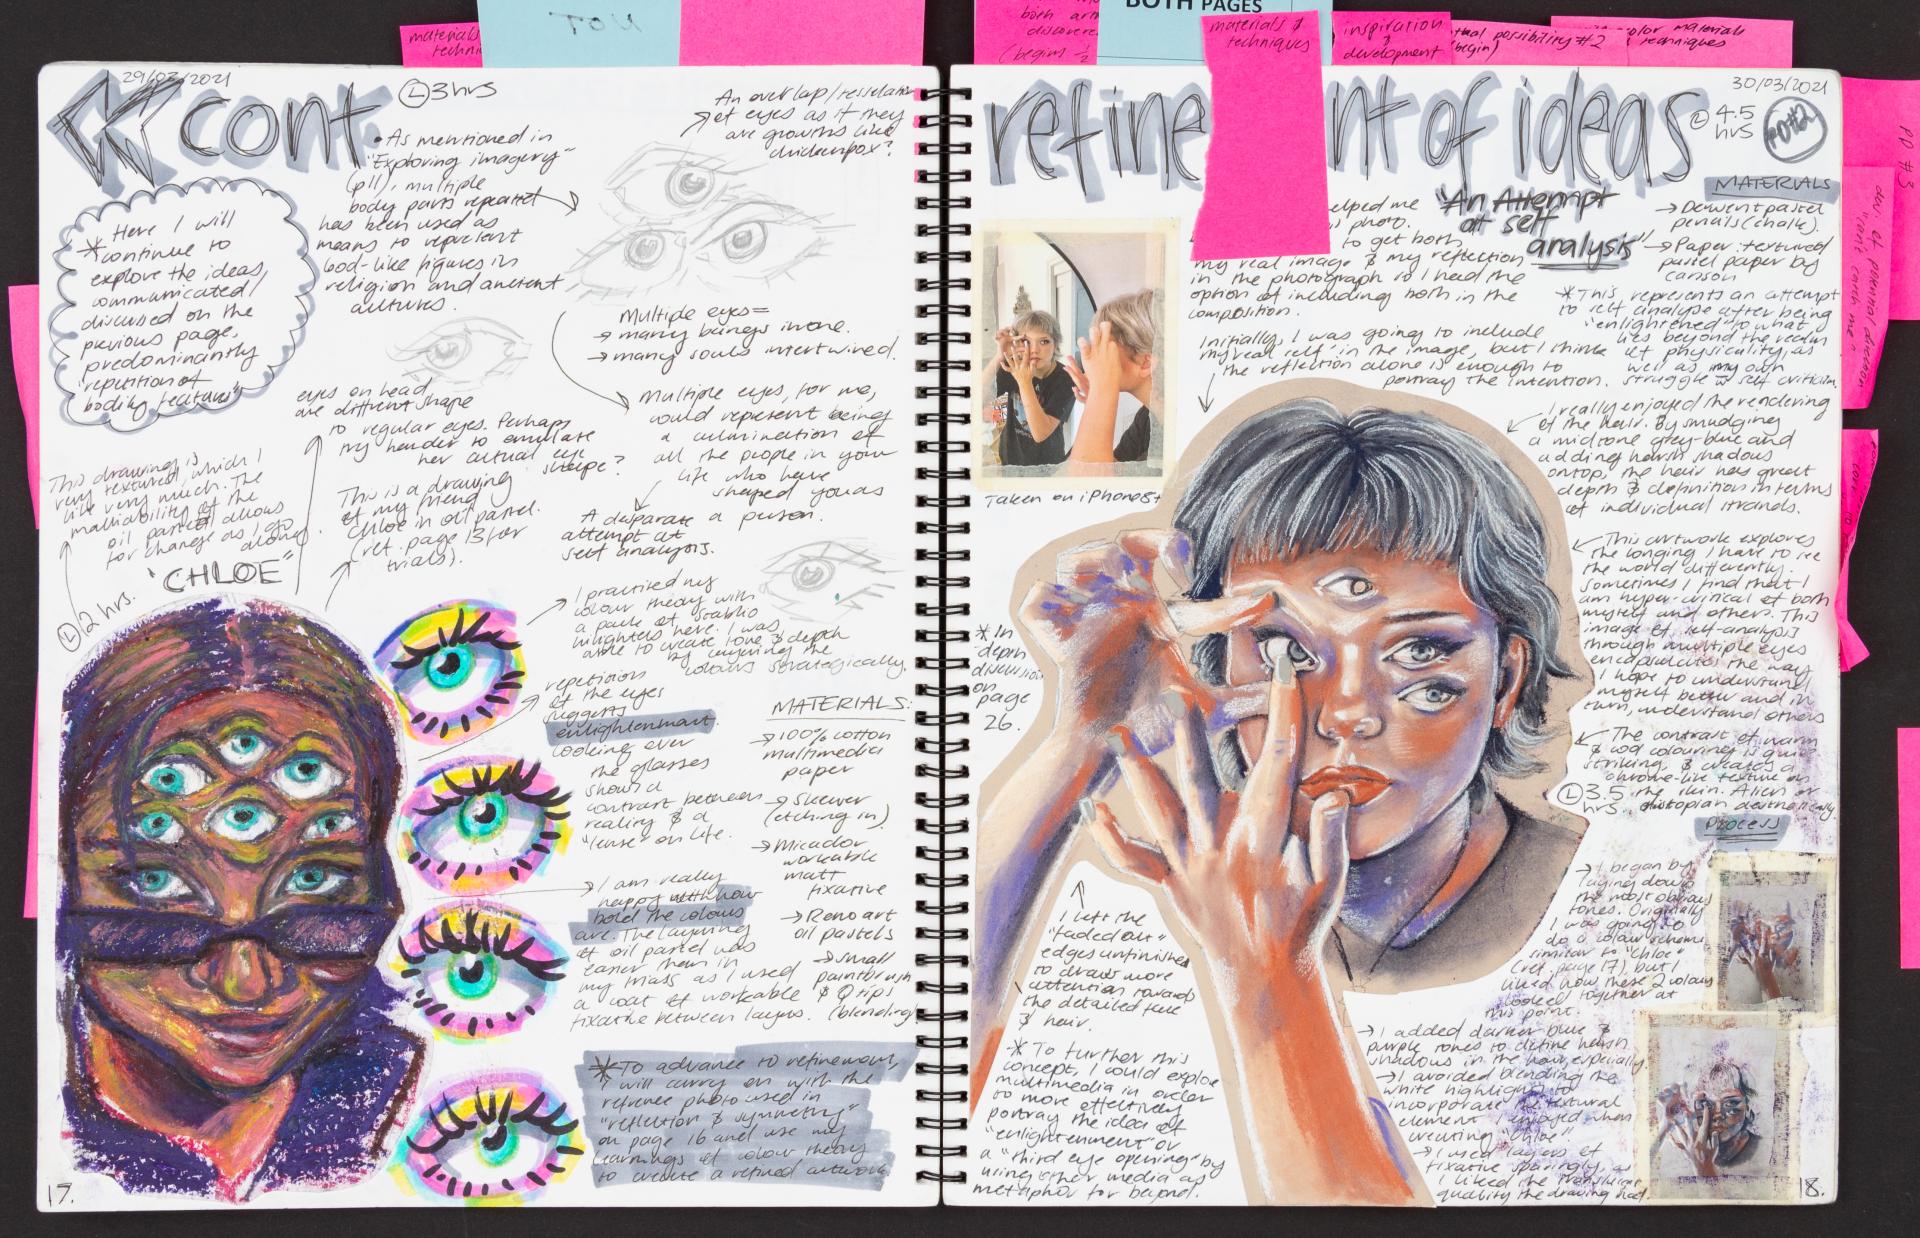 materials
techni
TOU
BOTH PAGES
both arti
discovere
(begins
materials &
techniques
inspiration
&
development
tual possibility #2
(begin)
olor materials
& techniques
PD #3
29/03/2021
cont.
L 3 hrs
Here I will
* continue to
explore the ideas,
communicated/
discussed on the
previous page,
predominantly
"repetition of
bodily features"
• As mentioned in
"Exploring imagery"
(p11), multiple
body parts repeated
has been used as
means to represent
God-like figures in
religion and ancient
cultures.
An overlap/tesselation
of eyes as if they
are growths like
chickenpox?
Multiple eyes=
→ many beings in one.
→ many souls intertwined.
eyes on head
are different shape
to regular eyes. Perhaps
try harder to emulate
her actual eye
shape?
Multiple eyes, for me,
would represent being
a culmination of
all the people in your
life who have
shaped you as
a person.
A desparate
attempt at
self analysis.
This drawing is
very textured, which I
like very much. The
malliability of the
oil pastel allows
for change as I go
along.
This is a drawing
of my friend
Chloe in oil pastel.
(ref. page 13 for
trials).
"CHLOE"
L 2 hrs.
I practised my
colour theory with
a pack of Stabilo
hilighters here. I was
able to create tone & depth
by layering the
colours strategically.
repetition
of the eyes
suggests
enlightenment.
Looking over
the glasses
shows a
contrast between
reality & a
"lense" on life.
MATERIALS:
→ 100% cotton
multimedia
paper
→ Skewer
(etching in)
→ Micador
workable
matt
fixative
→ Reno art
oil pastels
→ small
paintbrush
& Q tips
(blending)
→ I am really
happy with how
bold the colours
are. The layering
of oil pastel was
easier than in
my trials as I used
a coat of workable
fixative between layers.
* To advance to refinement,
I will carry on with the
refrence photo used in
"reflection & symmetry"
on page 16 and use my
learnings of colour theory
to create a refined artwork.
17.
refine nt of ideas
30/03/2021
L 4.5
hrs
elped me
photo.
to get both
my real image & my reflection
in the photograph so I had the
option of including both in the
composition.
"An Attempt
at self
analysis"
MATERIALS
→ Derwent pastel
pencils (chalk).
→ Paper: textured
pastel paper by
canson
Initially, I was going to include
my real self in the image, but I think
the reflection alone is enough to
portray the intention.
* This represents an attempt
to self analyse after being
"enlightened" to what
lies beyond the realm
of physicality, as
well as my own
struggle w self criticism.
Taken on iPhone 8+
I really enjoyed the rendering
of the hair. By smudging
a midtone grey-blue and
adding harsh shadows
ontop, the hair has great
depth & definition in terms
of individual strands.
This artwork explores
the longing I have to see
the world differently.
Sometimes I find that I
am hyper-critical of both
myself and other. This
image of self-analysis
through multiple eyes
encapsulates the way
I hope to understand
myself better and in
turn, understand others
The contrast of warm
& cool colouring is quite
striking, & creates a
chrome-like texture on
the skin. Alien or
dystopian aesthetically.
L 3.5
hrs
* In
depth
discussion
on
page
26.
PROCESS
→ I began by
laying down
the most obvious
tones. Originally
I was going to
do a colour scheme
similar to "Chloe"
(ref. page 17), but I
liked how these 2 colours
looked together at
this point.
I left the
"faded out"
edges unfinished
to draw more
attention towards
the detailed face
& hair.
* To further this
concept, I could explore
multimedia in order
to more effectively
portray the idea of
"enlightenment" or
a "third eye opening" by
using other media as
metaphor for beyond.
→ I added darker blue &
purple tones to define harsh
shadows in the hair especially.
→ I avoided blending the
white highlights to
incorporate the textural
element I enjoyed when
creating "Chloe".
→ I used layers of
fixative sparingly, as
I liked the translucent
quality the drawing had.
18.